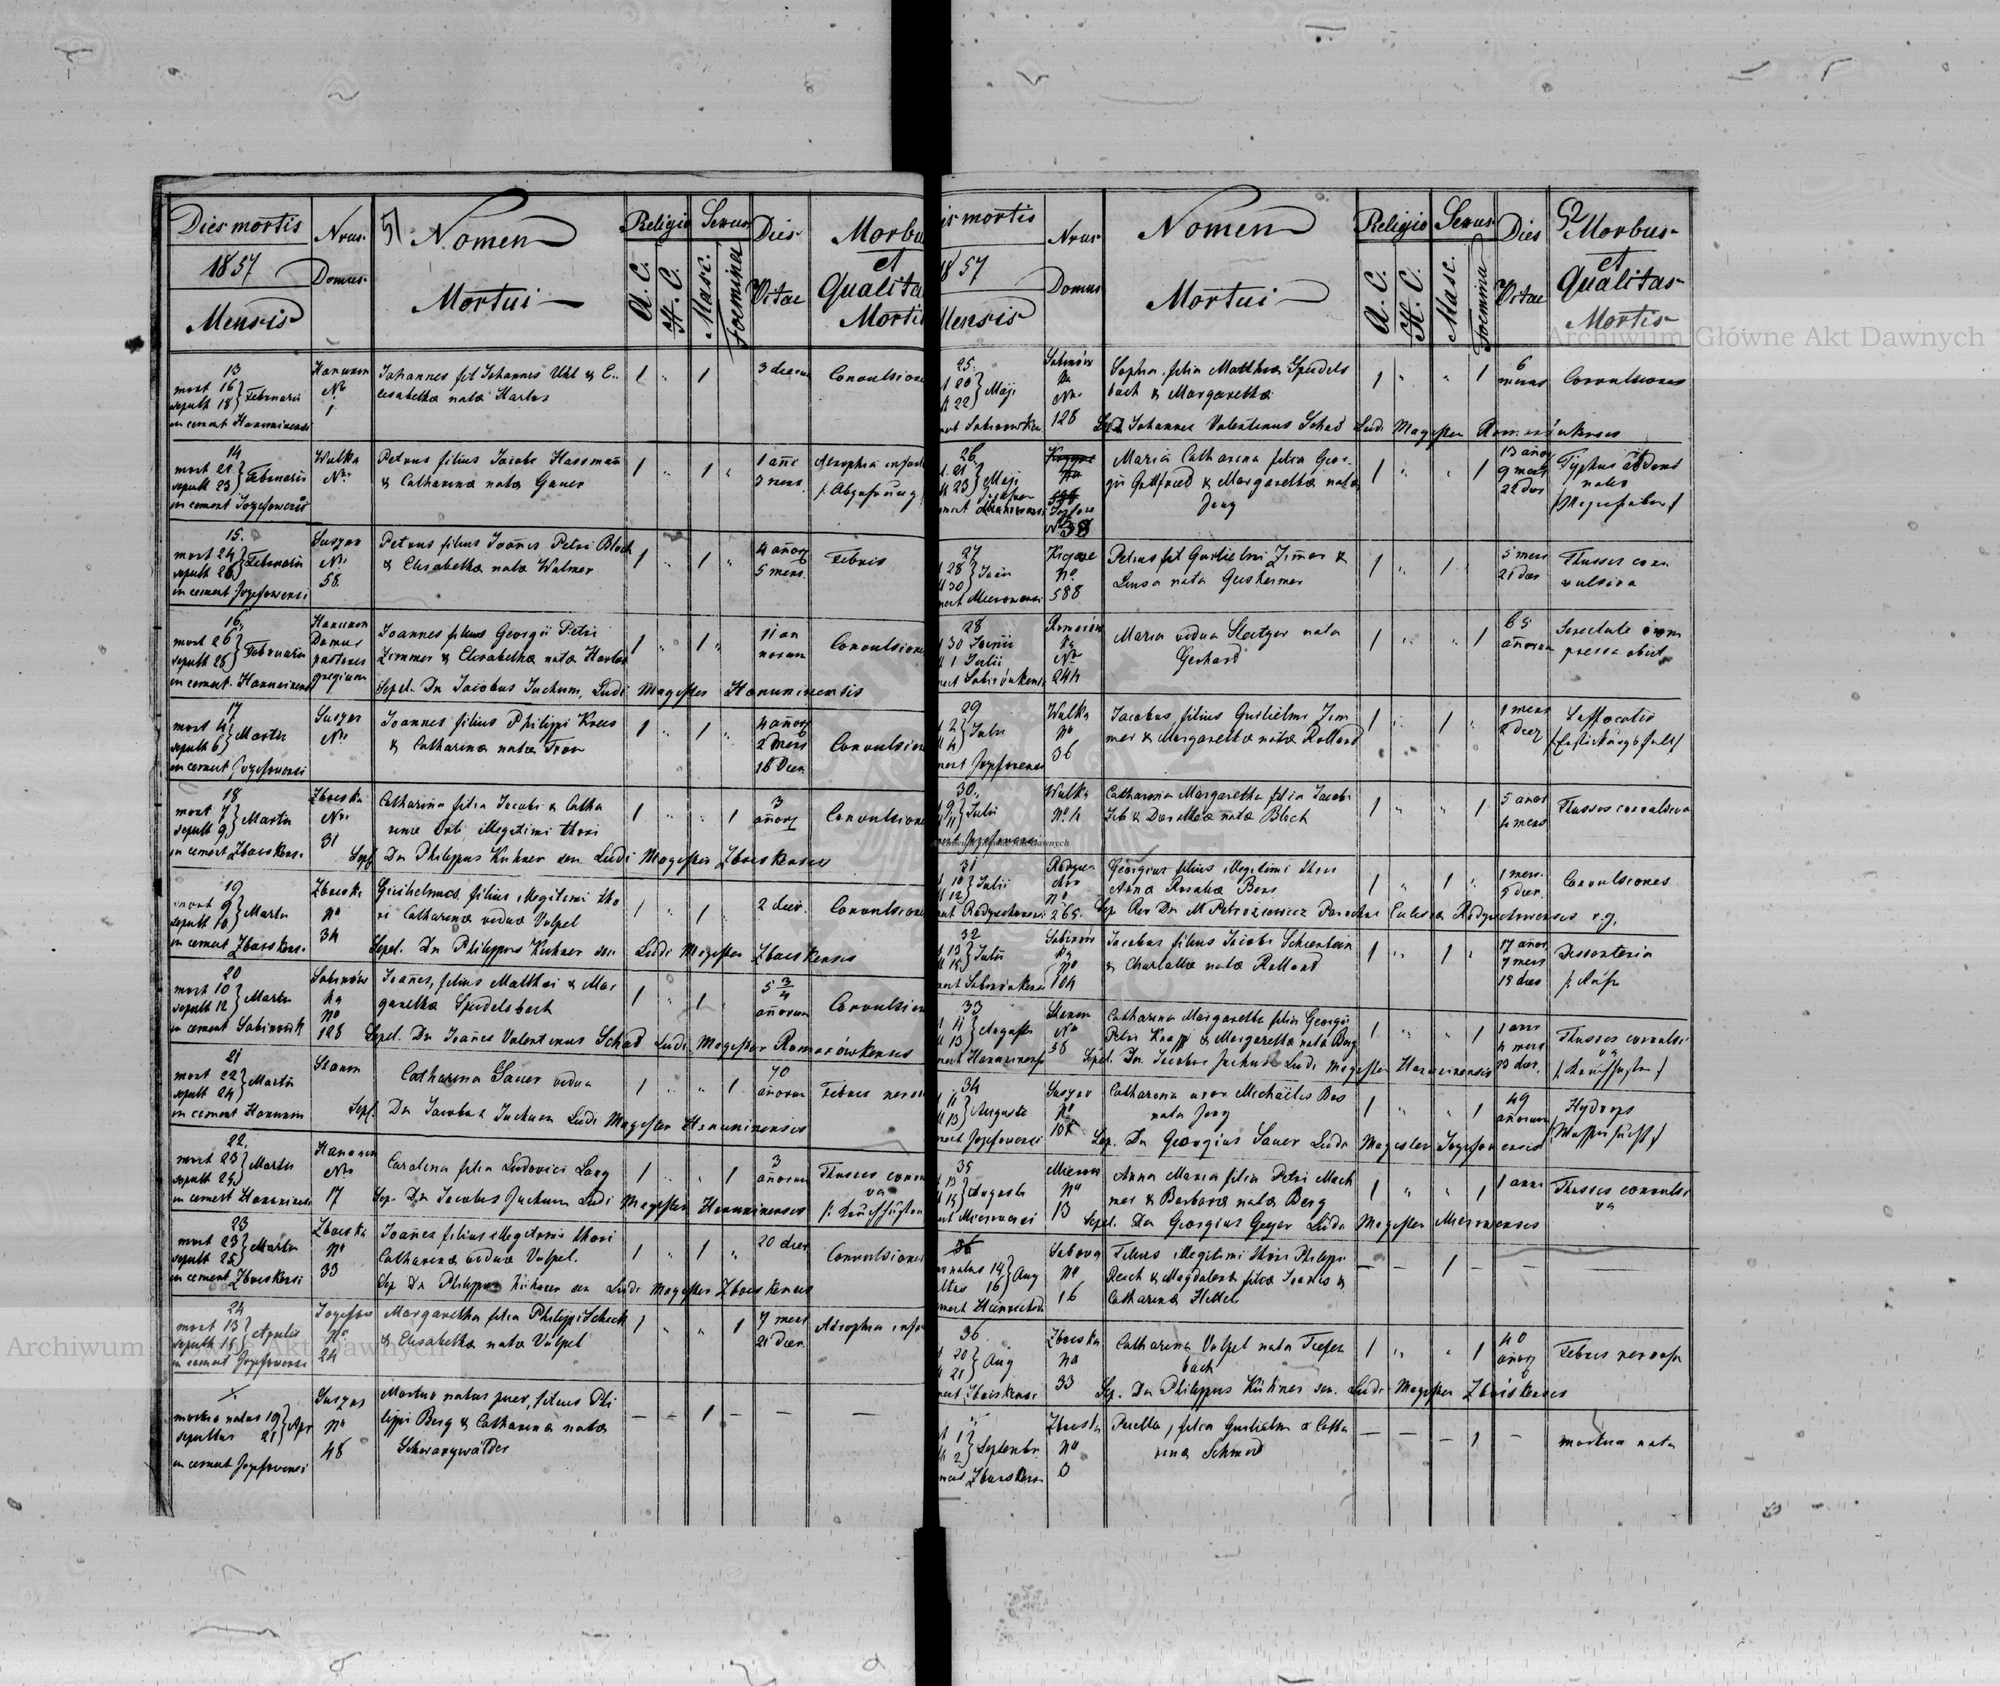 Dies mortis
1857
Mensis
Nrus
Domus
51
Nomen
Mortui
Religio
A. C.
H. C.
Sexus
Masc.
Foemina
Dies
Vitae
Morbu
et
Qualita
Morti
13
mort 16
sepult 18
Februarii
in cemet Hanuninensi
Hanunin
Nr.
1
Johannes fil Johannes Uhl & E..
lisabethæ natæ Harlos
1 " 1
3 dierum
Convulsione
14
mort 21
sepult 23
Februarii
in cement Jozefowensi
Wulka
Nr.
Petrus filius Jacobi Hassmañ
& Catharinæ natæ Gauer
1 1 "
1 añi
3 mens
Atrophia infant
/: Abzehrung
15.
mort 24
sepult 26
Februarii
in cement Jozefowensi
Suszno
Nr.
58.
Petrus filius Joañis Petri Bloch
& Elisabethæ natæ Walmer
1 " 1 "
4 añorz
5 mens.
Febris
16.
mort 26
sepult 28
Februarii
in cement. Hanuninensi
Hanunin
Domus
pastoris
gregium
Joannes filius Georgii Petri
Zimmer & Elisabethæ natæ Harlos
Sepel. Dn Jacobus Juchum, Ludi Magister Hanuninensis
1 " 1 "
11 an
norum
Convulsione
17
mort 4
sepult 6
Martii
in cement Jozefowensi
Suszno
Nr.
Joannes filius Philippi Krees
& Catharinæ natæ
1 " 1 "
4 añorz
2 mens
18 Dier.
Convulsione
18
mort 7
sepult 9
Martii
in cement Zboiskensi
Zboiska
Nr.
31
Catharina filia Jacobi & Catha
rinæ Orb illegitimi thori
Sepel Dn Philippus Kühner sen Ludi Magister Zboiskensis
1 " " 1
3
añorz
Convulsione
19
mort 9
sepult 10
Martii
in cement Zboiskensi
Zboiska
No
34
Guilhelmus filius illegitimi tho
ri Catharinæ viduæ Volpel
Sepel. Dn Philippus Kühner sen Ludi Magister Zboiskensis
1 " 1 "
2 dier.
Convulsione
20
mort 10
sepult 12
Martii
in cement Sabinowk
Sabinów
ka
No
128
Joañes, filius Matthæi & Mar
garethæ Speidelsbach
Sepel. Dn Joañes Valentinus Schad Ludi Magister Romanówkensis
1 " 1 "
5 3/4
añorum
Convulsion
21
mort 22
sepult 24
Martii
in cement Hanunin
Stanin
Catharina Sauer vidua
Sepel Dn Jacobus Juchum Ludi Magister Hanuninensis
1 " " 1
70
añorum
Febris nervos
22.
mort 23
sepult 25
Martii
in cement Hanuninensi
Hanunin
Nr.
17
Carolina filia Ludovici Lang
Sep. Dn Jacobus Juchum Ludi Magister Hanuninensis
1 " " 1
3
añorum
Thusses convu
va
/: Keuchhusten
23
mort 23
sepult 25
Martii
in cement Zboiskensi
Zboiska
No
33
Joañes filius illegitimi thori
Catharinæ viduæ Volpel.
Sep Dn Philippus Kühner sen Ludi Magister Zboiskensis
1 " 1 "
20 dier
Convulsiones
24
mort 13
sepult 15
Aprilis
in cement Jozefowensi
Jozefow
No
24
Margaretha filia Philippi Scheck
& Elisabethæ natæ Volpel
1 " " 1
7 mens
21 dier.
Atrophia infan
mortuo natus 19
sepultus 21
Apr
in cement Jozefowensi
Suszno
No
48
Mortuo natus puer, filius Phi
lippi Berg & Catharinæ natæ
Schwarzwälder
– – 1 – – –
is mortis
1857
Mensis
Nrus
Domus
Nomen
Mortui
Religio
A. C.
H. C.
Sexus
Masc.
Foemina
Dies
Vitae
52
Morbus
et
Qualitas
Mortis
25.
20
22
Maji
Sabinów
ka
Nr.
128
Sophia filia Matthiæ Speidels
bach & Margarethæ
Sepel Johannes Valentinus Schad Ludi Magister Romanówkensis
1 " " 1
6
mens
Convulsiones
26.
21
23
Maji
Jozefow
No
38
Maria Catharina filia Geor.
gii Gottfried & Margarethæ natæ
Jung
1 " " 1
13 añorz
9 mens
22 dier
Typhus abdomi
nalis
27
28
30
Junii
ment Mierowensi
No
588
Petrus fil Guilielmi Zimer &
Luisa nata Geishermer
1 " 1
5 mens
21 dier
Thusses con
vulsiva
28
30 Junii
1 Julii
Romanów
ka
Nr.
244
Maria vidua Slatzer nata
Gerhard
1 " " 1
65
añorum
Senectute oppressa obiit
29
2
4
Julii
ment Jozefowensi
Wulka
No
36
Jacobus, filius Guilielmi Zim
mer & Margarethæ natæ Rolland
1 " 1 "
1 mens
2 dier
Suffocatio
/Erstickungsfall/
30.
9
11
Julii
Wulka
No 4
Catharina Margaretha filia Jacobi
Zeb & Dorotheæ natæ Bloch
1 " " 1
5 anor
4 mens
Thusses convulsiva
31
10
12
Julii
Radziechow
No
265.
Georgius filius illegitimi thori
Annæ Rosaliæ Bens
Sep Rev Dn M Petroziewicz Parochus Ecclesiæ Radziechowensis r.g.
1 " 1 "
1 mens.
5 dier.
Convulsiones
32
13
15
Julii
Sabinów
ka
No
104
Jacobus filius Jacobi Schienbein
& Charlottæ natæ Rolland
1 " 1 "
17 añor
7 mens
19 dies
Dissenteria
/: Ruhr
33
11
13
Augusti
ment Hanuninensi
Stanin
No
58
Catharina Margaretha filia Georgii
Petri Knapp & Margarethæ natæ Berg
Sepel. Dn. Jacobus Juchum Ludi Magister Hanuninensis
1 " " 1
1 anni
4 mens
23 dier.
Thusses convulsi
va
/: Keuchhusten /
34
11
13
Augusti
ment Jozefowensi
Suszno
No
101
Catharina uxor Michaëlis Bos
nata Jung
Sep. Dn Georgius Sauer Ludi Magister Jozefowensis
1 " " 1
49
añorum
Hydrops
/Wassersucht/
35
13
15
Augusti
ment Mierowensi
Mierow
No
13
Anna Maria filia Petri Mech
mer & Barbaræ natæ Berg
Sepel. Dn Georgius Geyer Ludi Magister Mierowensis
1 " " 1
1 anni
Thusses convulsi
va
36
natus 14
16
Aug
No
16
Filius illegitimi thori Philippi
Reich & Magdalenæ filiæ Joanis &
Catharinæ Hettel
– – 1 – – –
36
20
21
Aug
ment Zboiskensi
Zboiska
No
33
Catharina Volpel nata Tiefen
bach
Sep. Dn Philippus Kühner sen. Ludi Magister Zboiskensis
1 " " 1
40
añorz
Febris nervosa
12
Septembr.
Zboiska
No
0
Puella, filia Guilielmi & Catha
rinæ Schmid
– – – 1 –
mortua nata
Archiwum Główne Akt Dawnych
Archiwum Główne Akt Dawnych
Archiwum Główne Akt Dawnych